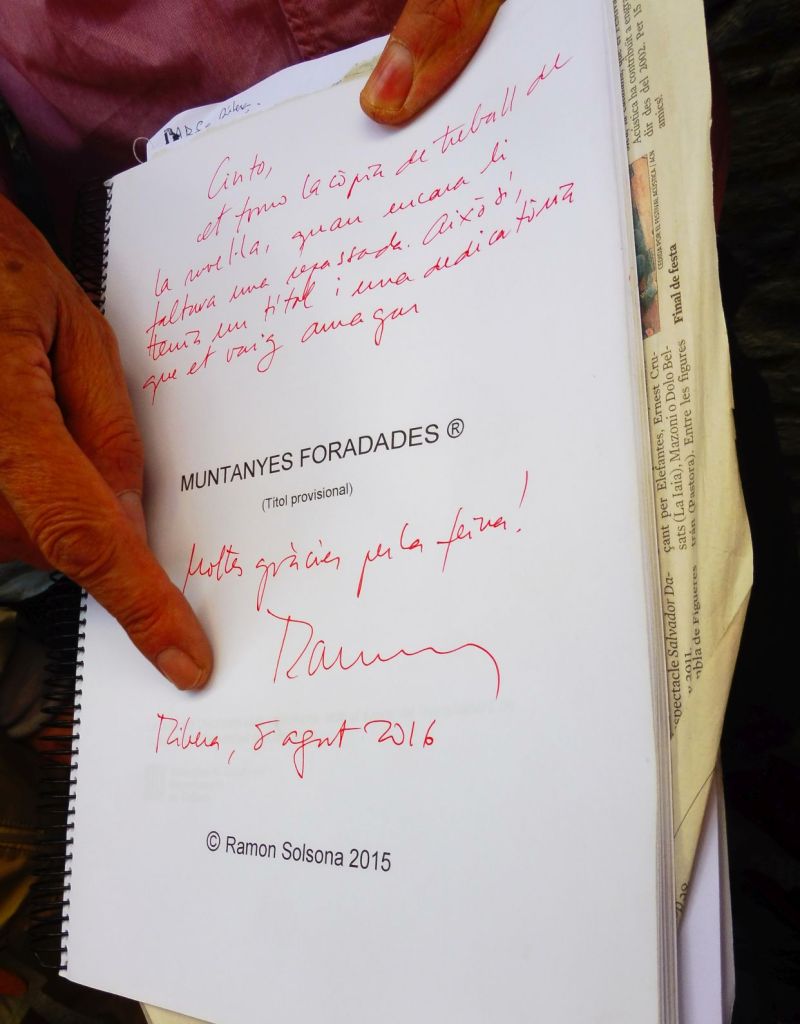 Cinto,
et torno la còpia de treball de
la novel·la, quan encara li
faltava una repassada. Això sí,
tenia un títol i una dedicatòria
que et vaig amagar
MUNTANYES FORADADES ®
(Títol provisional)
Moltes gràcies per la feina!
Ramon
Ribera, 8 agost 2016
© Ramon Solsona 2015
Acústica ha contribuït a
dir des del 2002. Per 15
amics!
Final de festa
çant per Elefantes, Ernest Cru-
sats (La Iaia), Mazoni o Dolo Bel-
trán (Pastora). Entre les figures
spectacle Salvador Da-
2011.
mbla de Figueres